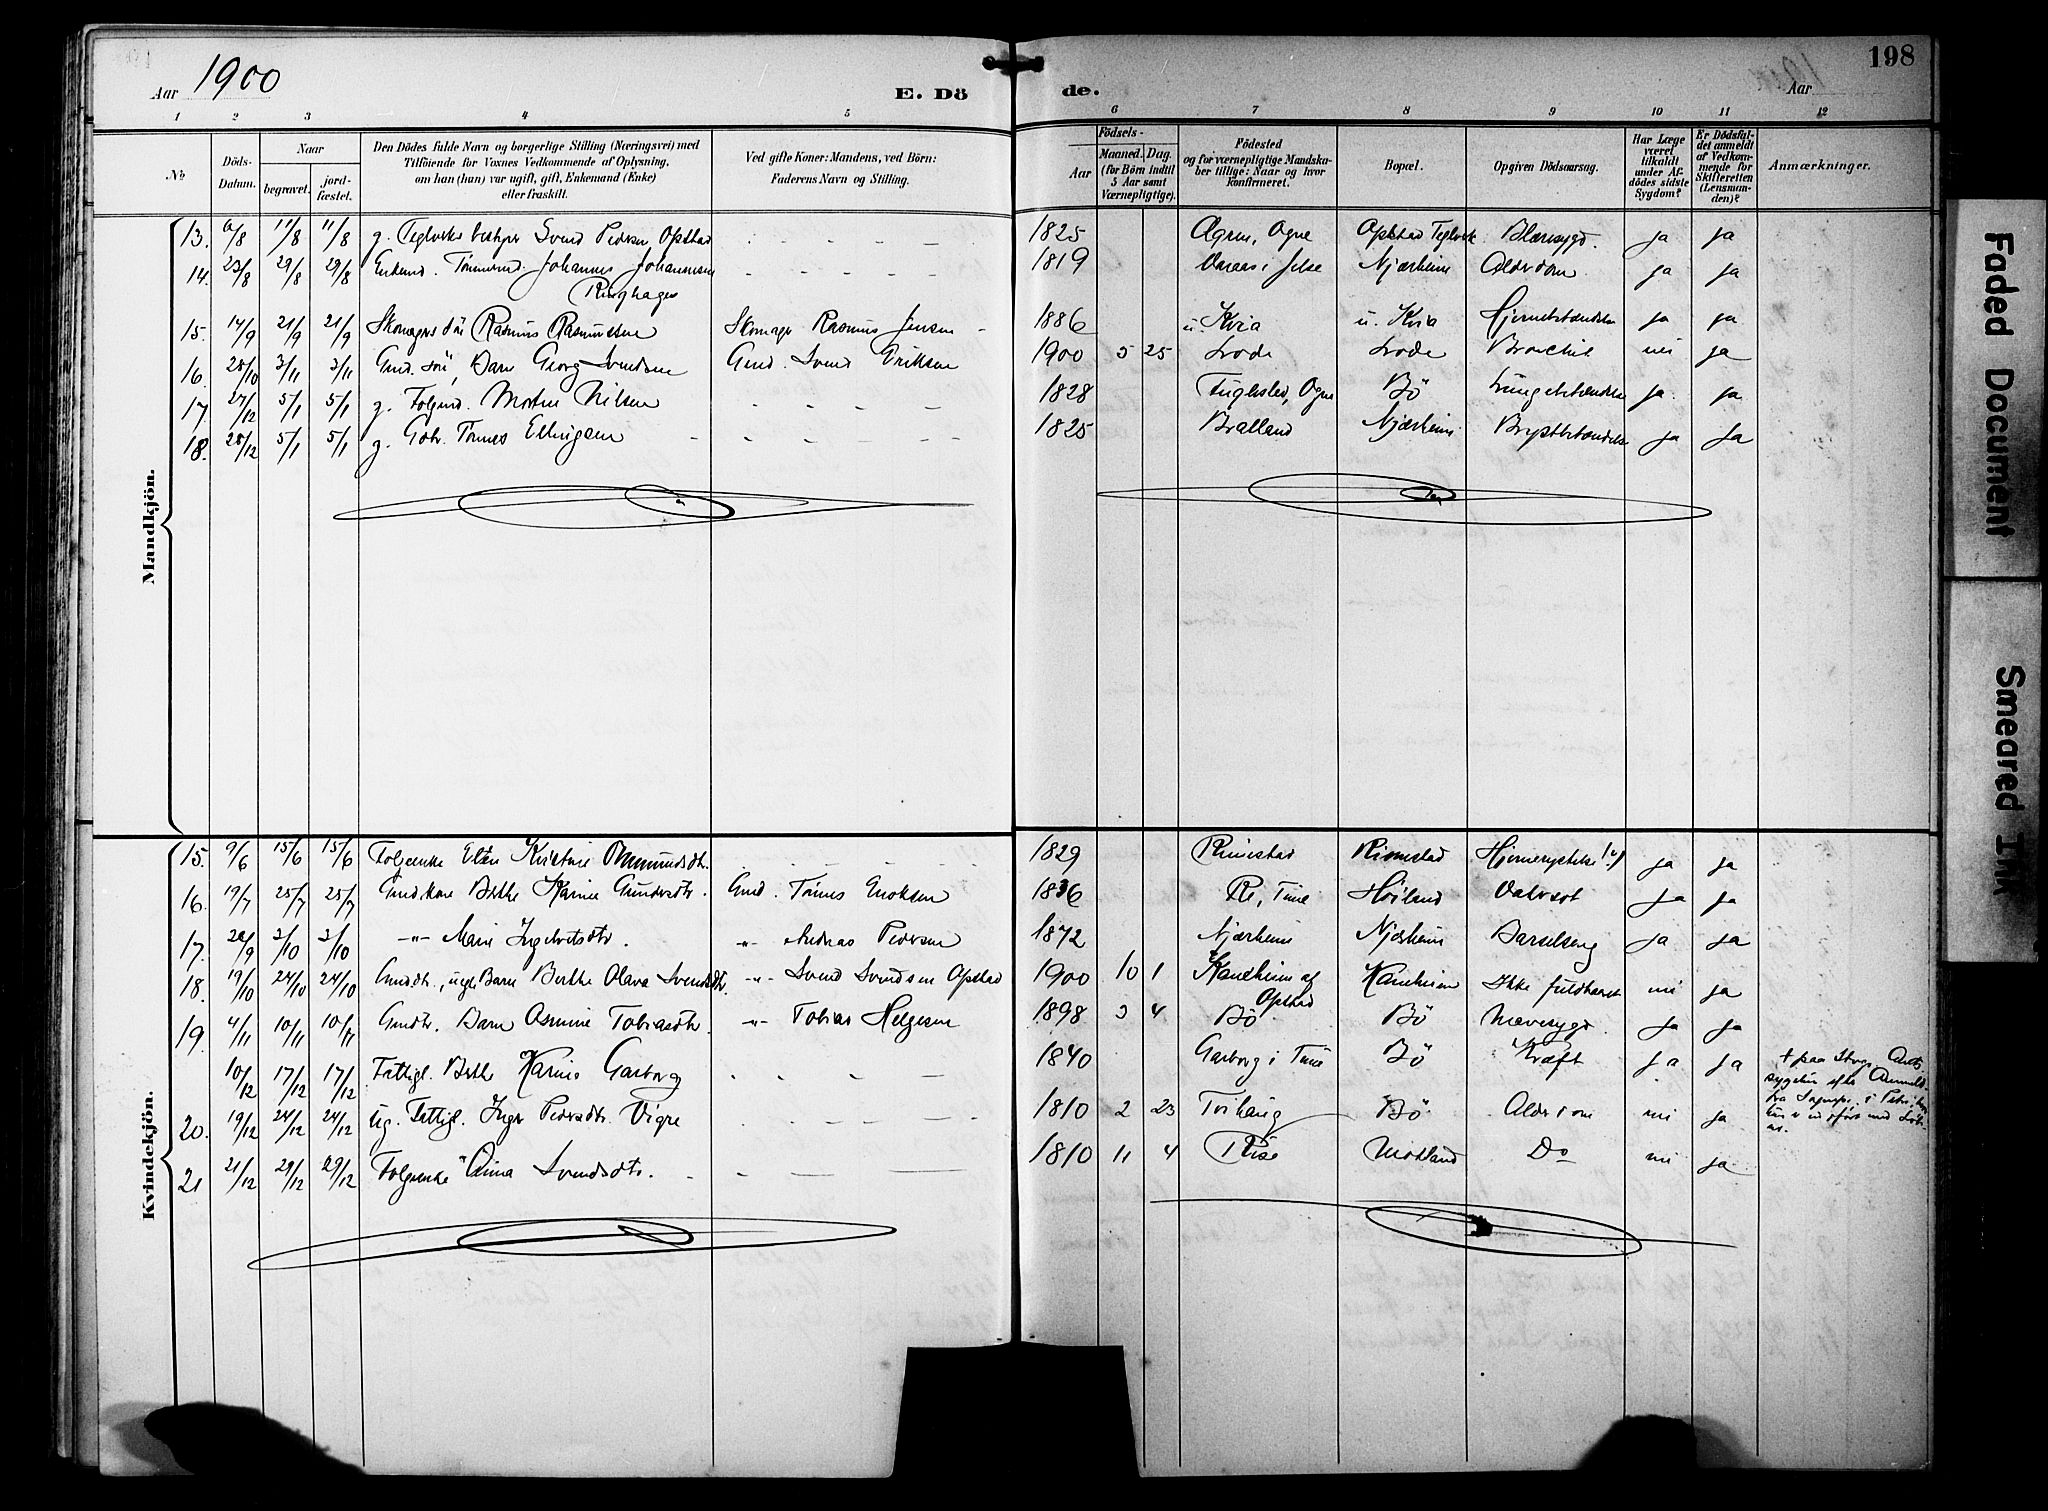 Aar 1900
E. Dö
de.
Aar
198
1 2 3 4 5 6 7 8 9 10 11 12
№
Döds-
Datum.
Naar
begravet.
jord-
fæstet.
Den Dödes fulde Navn og borgerlige Stilling (Næringsvei) med
Tilföiende for Voxnes Vedkommende af Oplysning,
om han (hun) var ugift, gift, Enkemand (Enke)
eller fraskilt.
Ved gifte Koner: Mandens, ved Börn:
Faderens Navn og Stilling.
Födsels-
Aar
Maaned.
Dag.
(for Börn indtil
5 Aar samt
Værnepligtige).
Födested
og for værnepligtige Mandska-
ber tillige: Naar og hvor
konfirmeret.
Bopæl.
Opgiven Dödsaarsag.
Har Læge
været
tilkaldt
under Af-
dödes sidste
Sygdom?
Er Dödsfal-
det anmeldt
af Vedkom-
mende for
Skifteretten
(Lensman-
den)?
Anmærkninger.
Mandkjön.
13. 6/8 11/8 11/8 g. Teglverks bestyrer Svend Pedersen Opstad 1825 Ogne Opstad Teglverk Blæresygd. ja ja
14. 23/8 29/8 29/8 Enkemd. Tømmermd. Johannes Johannesen 1819 Jelse Njærheim Alderdom ja ja
Ringhagen
15. 14/9 21/9 21/9 Skomagers sön Rasmus Rasmussen Skomager Rasmus Jensen 1886 u. Kvia u. Kvia Hjernebetændelse ja ja
16. 28/10 3/11 3/11 Gmd. sön, Barn Georg Svendsen Gmd. Svend Eriksen 1900 5 25 Lode Lode Bronchit nei ja
17. 27/12 5/1 5/1 g. Folgmd. Morten Nilsen 1828 Fuglestad, Ogne Bö Lungebetændelse ja ja
18. 28/12 5/1 5/1 g. Gbr. Tönnes Ellingsen 1825 Bratland Njærheim Brystbetændelse ja ja
Kvindekjön.
15. 9/6 15/6 15/6 Folgenke Elen Kristine Ommundsdtr. 1829 Rimestad Rimestad Hjernerystelse (?) ja ja
16. 19/7 25/7 25/7 Gmds kone Berthe Karine Gundersdtr. Gmd. Tönnes Enoksen 1836 Re, Time Höiland Vatersot ja ja
17. 26/9 2/10 2/10 -"- Marie Ingebretsdtr. -"- Andreas Pedersen 1872 Njærheim Njærheim Barselseng ja ja
18. 19/10 24/10 24/10 Gmdsdtr., ugl. Barn Berthe Olava Svendsdtr. -"- Svend Svendsen Opstad 1900 10 1 Kandheim af Kanheim Ikke fuldbaaret nei ja
Opstad
19. 4/11 10/11 10/11 Gmdtr. Barn Asmine Tobiasdtr. -"- Tobias Helgesen 1898 3 4 Bö Bö ja ja
10/12 17/12 17/12 Fattigl. Berthe Karine Garborg 1840 Garborg i Time Bö Kræft ja ja
20. 19/12 24/12 24/12 ug. Fattigl. Inger Pedersdtr. Vigre 1810 2 23 Tvihaug Bö Alderdom nei ja
21 21/12 29/12 29/12 Folgenke Anna Svendsdtr. 1810 11 4 Risa Motland Do nei ja
Faded Document
Smeared Ink